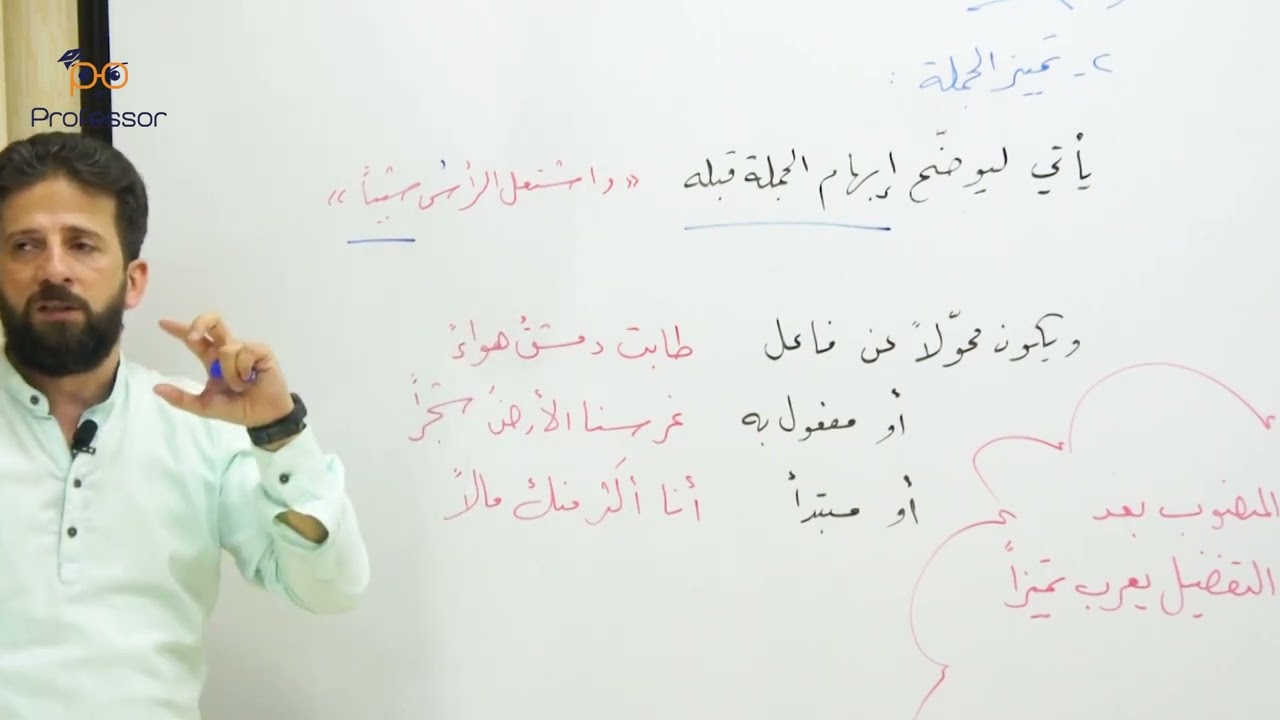 Professor
٢- تمييز الجملة :
يأتي ليوضّح إبهام الجملة قبله «واشتعل الرأسُ شيباً»
ويكون محوّلاً عن فاعل طابت دمشقُ هواءً
أو مفعول به غرسنا الأرضَ شجراً
أو مبتدأ أنا أكثَر منك مالاً
المنصوب بعد
التفضيل يعرب تميزاً